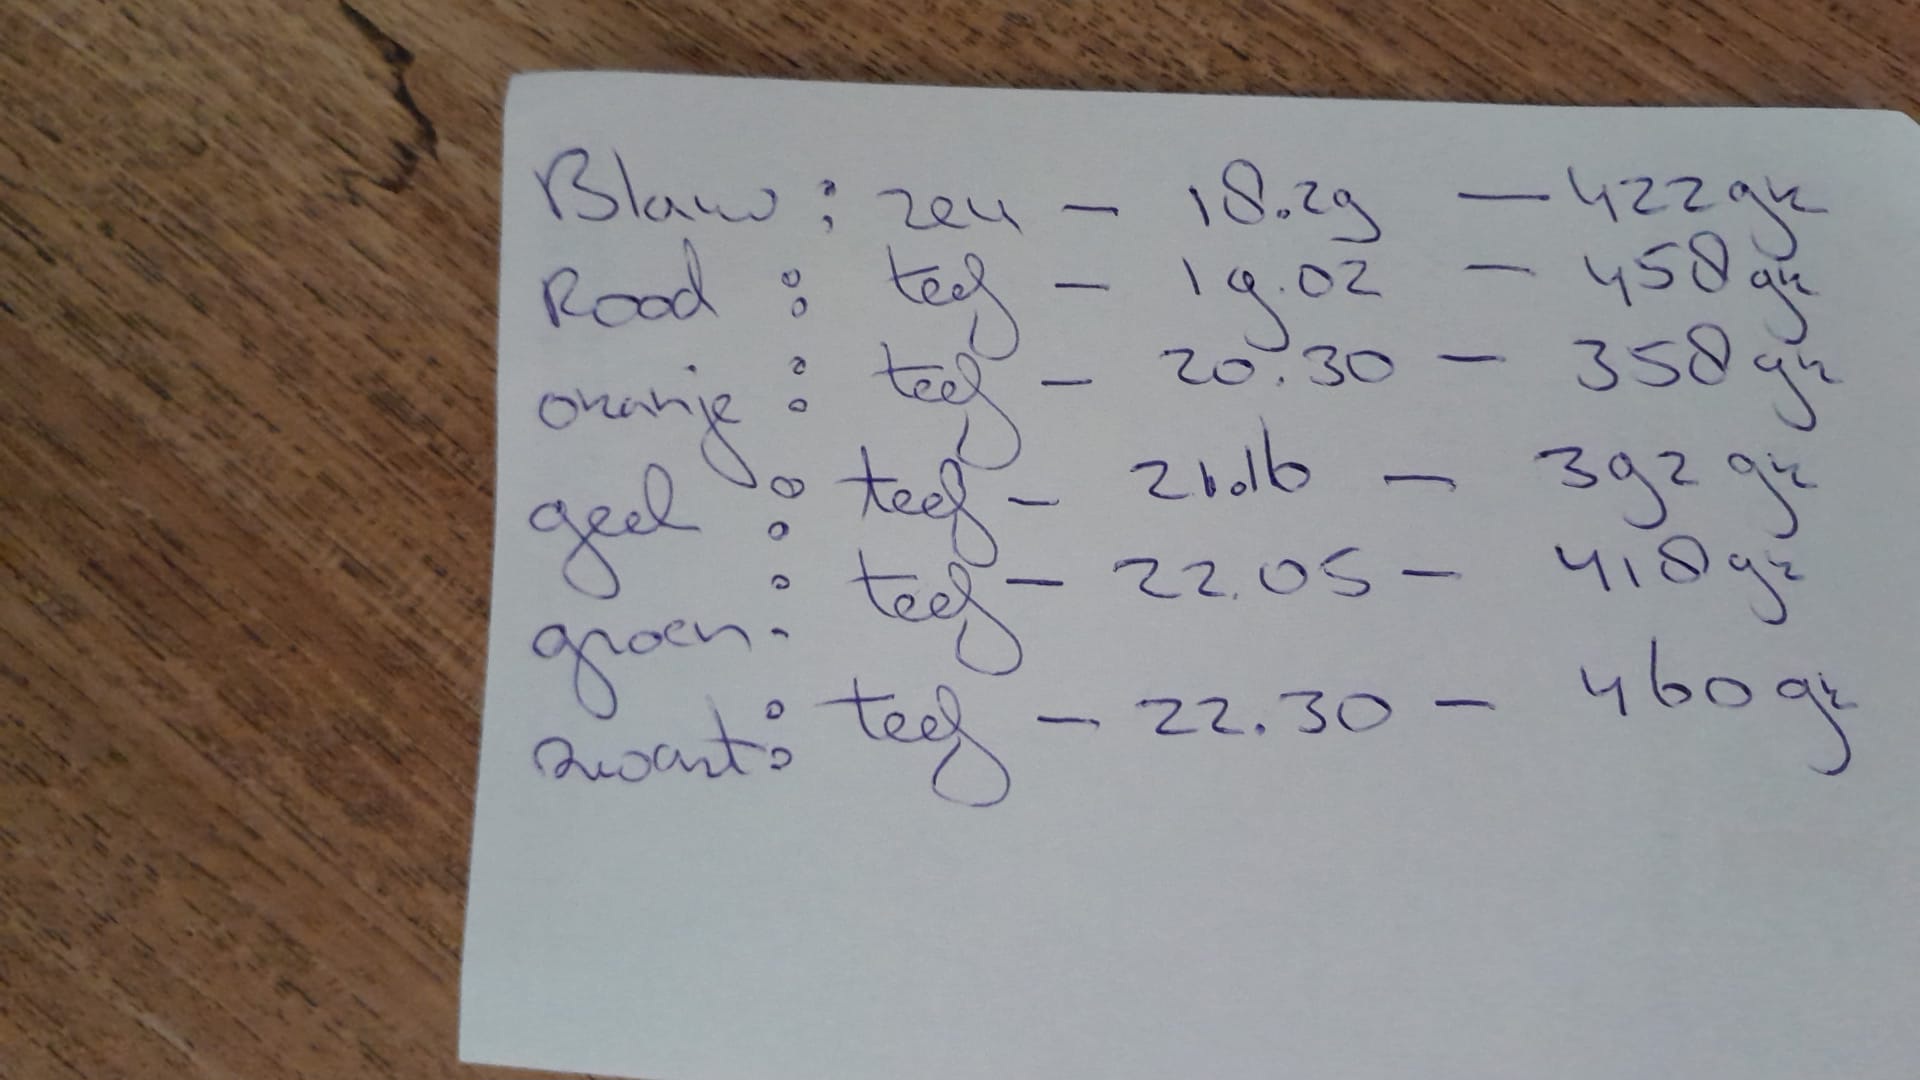 Blauw : reu - 18.29 - 422 gr
Rood : teef - 19.02 - 458 gr
oranje : teef - 20.30 - 358 gr
geel : teef - 21.16 - 392 gr
groen : teef - 22.05 - 418 gr
zwart : teef - 22.30 - 460 gr